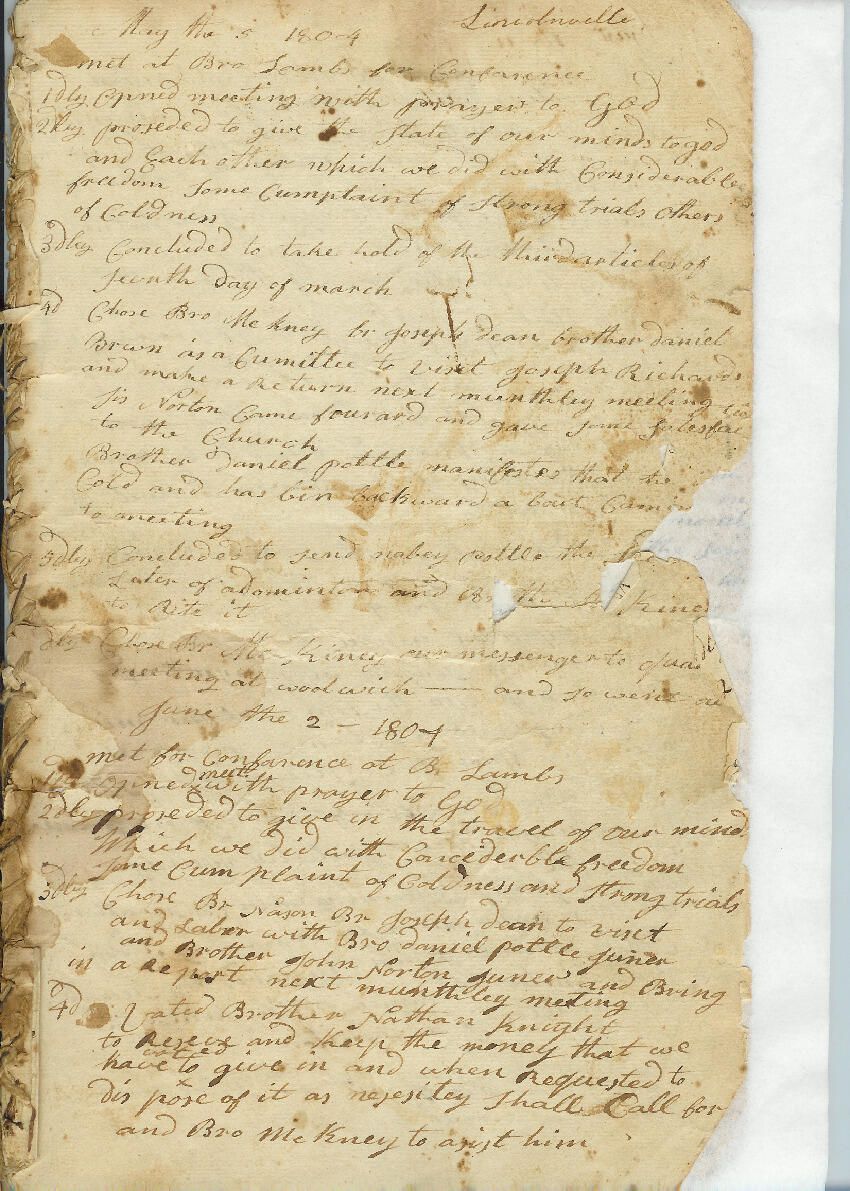 May the 5 1804 Lincolnville
met at Bro Lambs for Confarence
1dly Opned meeting with prayer to God
2dly proseded to give the State of our minds to god
and Each other which we did with Considerable
freedom Some Cumplaint of Strong trials others
of Coldness
3dly Concluded to take hold of the thiird articles of
fourth Day of march
4d Chose Bro Mc kney br Joseph dean brother daniel
Brown as a Cumittee to visit Joseph Richards
and make a Return next munthley meeting
Sis Norton Came fourard and gave Some
to the Church
Brother daniel pottle manifestes that he
Cold and has bin backward a bout
to meeting
5dly Conclude to send nabey pottle the
Later of adominton and Br the Kiney
to Rite it
dly Chose Br Mc Kiney our messenger to
meeting at woolwich — and so went
June the 2 - 1804
met for Confarence at B Lambs
1d Opned meet with prayer to God
2dly proseded to give in the travel of our mind
Which we did with Conciderble freedom
Some Cumplaint of Coldness and Strong trials
3dly Chose Br Nason Br Joseph dean to visit
and Laber with Bro daniel pottle Juner
and Brother John Norton Juner and Bring
in a Report next munthley meting
4d Voted Brother Nathan Knight
to Reseve and Keep the money that we
have voted to give in and when Requested to
dis pose of it as nesesitey Shall Call for
and Bro Mc Kney to asist him